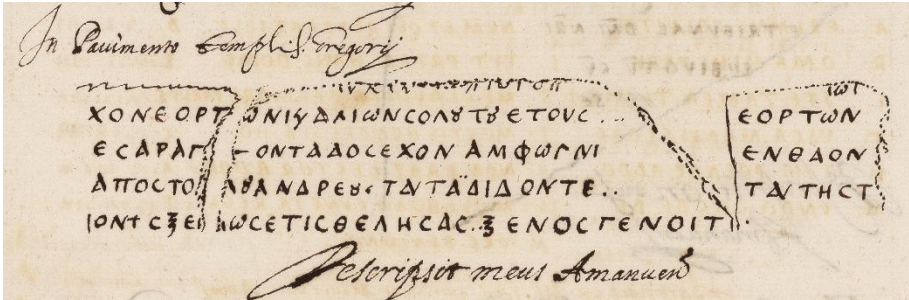 In Pauimento Templi S. Gregorij
ΧΟΝΕΟΡΤ ΩΝΙ ΔΛΙΩΝ CΟΛΟΥ ΤΟΥ ΕΤΟΥC... ΕΟΡΤΩΝ
ΕCΑΡΑΓ ΟΝΤΑΔΟCΕΧΟΝ ΑΜΦΩΓΝΙ ΕΝΘΔΟΝ
ΑΠΟCΤΟ ΛΟΥΑΝΔΡΕΟΥ ΤΑΥΤΑΪΔΙΔΟΝΤΕ.. ΤΑΥΤΗCΤ
ΙΟΝΤCΞΕΙ ΙΩCΕΤΙCΘΕΛΗCΑC..ΞΕΝΟCΓΕΝΟΙΤ
Descripsit meus Amanuen